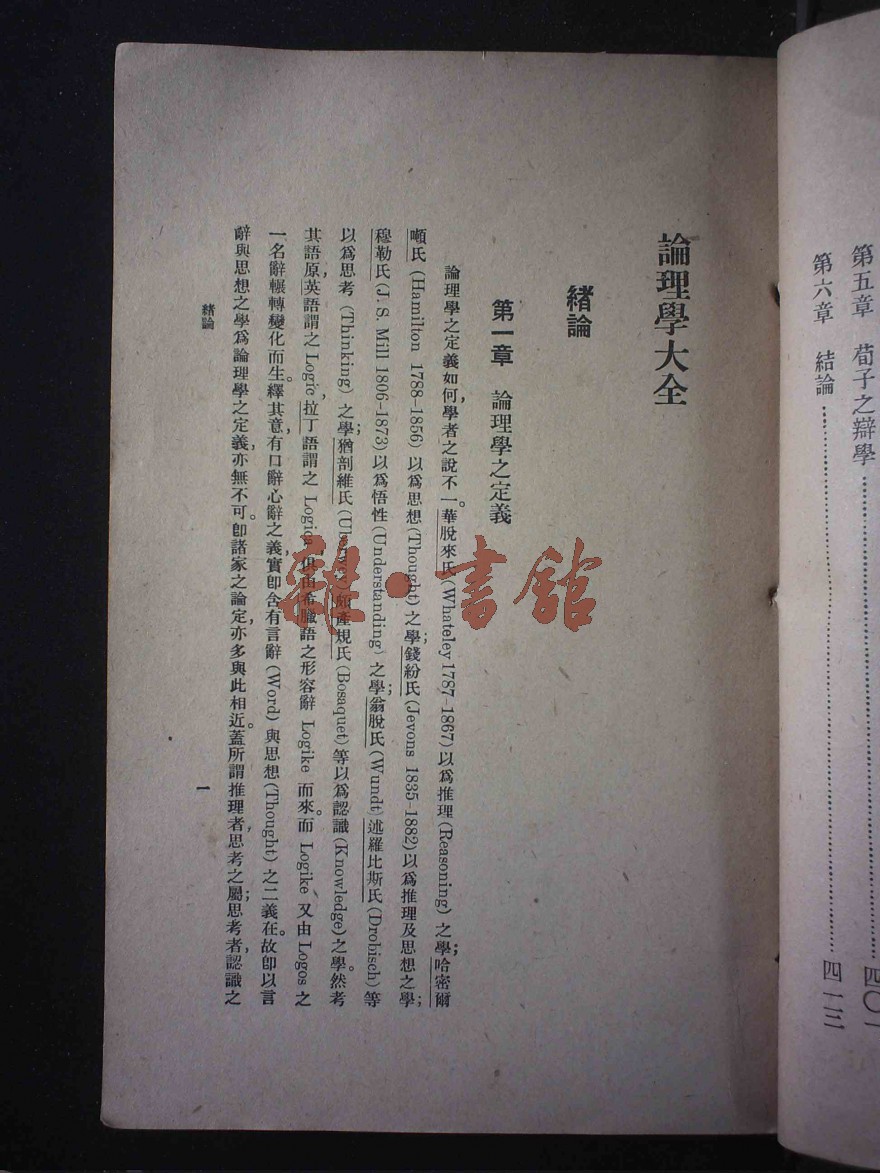 第五章　荀子之辯學……四〇一
第六章　結論……四一三
論理學大全
緒論
第一章　論理學之定義
論理學之定義如何，學者之說不一。華脫來氏(Whateley 1787-1867)以爲推理(Reasoning)之學；哈密爾
頓氏(Hamilton 1788-1856)以爲思想(Thought)之學；錢紛氏(Jevons 1835-1882)以爲推理及思想之學；
穆勒氏(J. S. Mill 1806-1873)以爲悟性(Understanding)之學；翁脫氏(Wundt)述羅比斯氏(Drobisch)等
以爲思考(Thinking)之學；猶剖維氏 頗產規氏(Bosaquet)等以爲認識(Knowledge)之學。然考
其語原，英語謂之Logic，拉丁語謂之Logica，俱由希臘語之形容辭Logike而來。而Logike又由Logos之
一名辭輾轉變化而生。繹其意，有口辭心辭之義，實卽含有言辭(Word)與思想(Thought)之二義在。故卽以言
辭與思想之學爲論理學之定義，亦無不可。卽諸家之論定，亦多與此相近。蓋所謂推理者，思考之屬；思考者，認識之
緒論
一
雜·書館